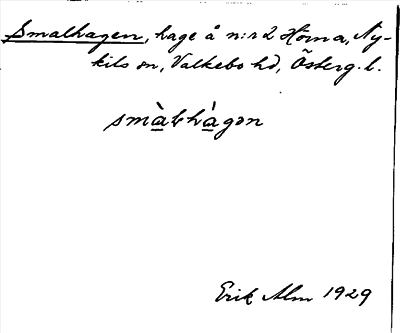 Smalhagen, hage å n:r 2 Hörna, Ny-
kils sn, Valkebo hd, Österg. l.
smàlhàgən
Erik Alm 1929